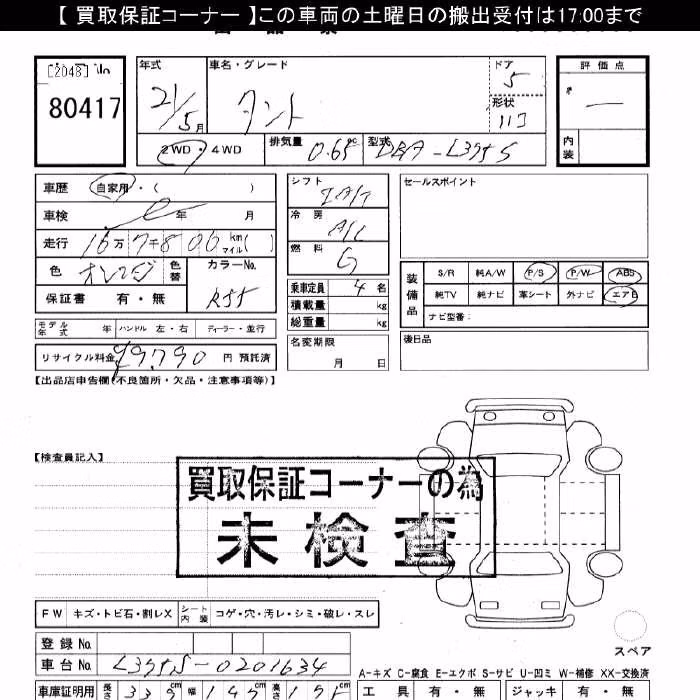 【 買取保証コーナー 】この車両の土曜日の搬出受付は17:00まで
[2048] No
80417
年式 車名・グレード ドア 評価点
21/5月 タント 5
形状
2WD・4WD 排気量 0.65 cc 型式 DBA-L375S 内装
車歴 自家用・( )
シフト IAT
セールスポイント
車検 年 月
冷房 A/C
走行 16万7千806 km マイル( )
燃料 G
色 オレンジ 色替 カラーNo. R55
保証書 有・無
乗車定員 4 名
積載量 kg
総重量 kg
装備品 S/R 純A/W P/S P/W ABS
純TV 純ナビ 革シート 外ナビ エアB
ナビ型番:
モデル年式 年 ハンドル 左・右 ディーラー・並行
名変期限 月 日
後日品
リサイクル料金 ¥9,790 円 預託済
【出品店申告欄(不良箇所・欠品・注意事項等)】
【検査員記入】
買取保証コーナーの為
未検査
FW キズ・トビ石・割レX シート内装 コゲ・穴・汚レ・シミ・破レ・スレ
スペア
登録 No.
車台 No. L375S-0201634
A-キズ C-腐食 E-エクボ S-サビ U-凹ミ W-補修 XX-交換済
車庫証明用 長さ 339 cm 幅 147 cm 高さ cm 工具 有・無 ジャッキ 有・無